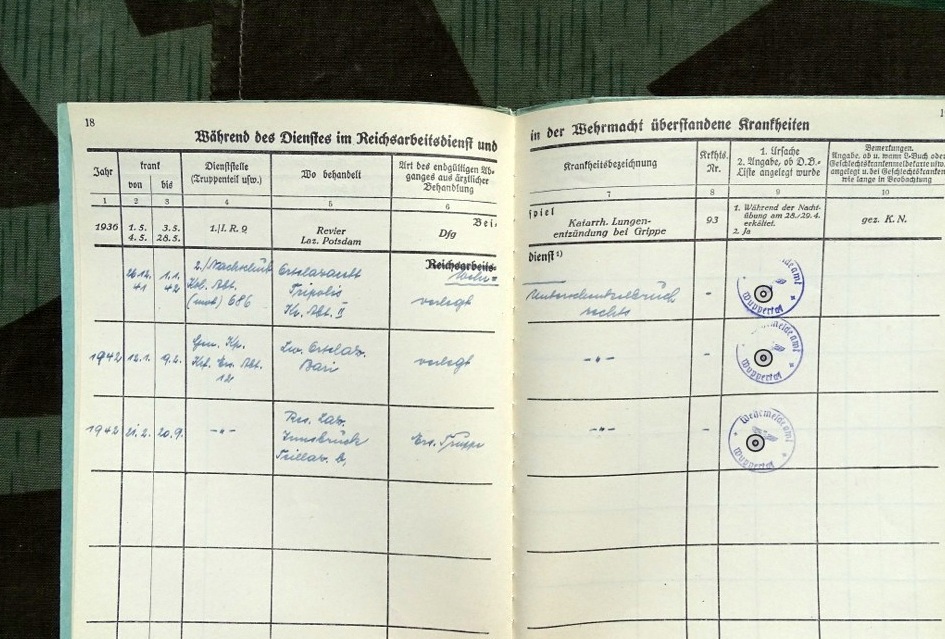 18
Während des Dienstes im Reichsarbeitsdienst und
in der Wehrmacht überstandene Krankheiten
Jahr
krank
von
bis
Dienststelle
(Truppenteil usw.)
Wo behandelt
Art des endgültigen Ab-
ganges aus ärztlicher
Behandlung
Krankheitsbezeichnung
Krkhts.
Nr.
1. Ursache
2. Angabe, ob D.B.-
Liste angelegt wurde
Bemerkungen.
Angabe, ob u. wann L-Buch oder
Geschlechtskrankenmeldekarte usw.
angelegt u. bei Geschlechtskranken
wie lange in Beobachtung
1 2 3 4 5 6 7 8 9 10
Bei-
spiel
1936
1. 5.
4. 5.
3. 5.
28. 5.
1./I. R. 9
Revier
Laz. Potsdam
Dfg
Katarrh. Lungen-
entzündung bei Grippe
93
1. Während der Nacht-
übung am 28./29. 4.
erkältet.
2. Ja
gez. K. N.
Reichsarbeits-
dienst ¹)
26.12.
41
1.1.
42
2./Nachschub
Kol. Abt.
(mot) 686
Ortslazarett
Tripolis
verlegt
Unterschenkelbruch
rechts
-
Wuppertal
1942
12.1.
9.2.
Gen. Kp.
Krf. Ers. Abt.
12
Bari
verlegt
-"-
-
Wuppertal
1942
21.2.
20.9.
-"-
Res. Laz.
Innsbruck
Ers. Truppe
-"-
-
Wehrmeldeamt
Wuppertal